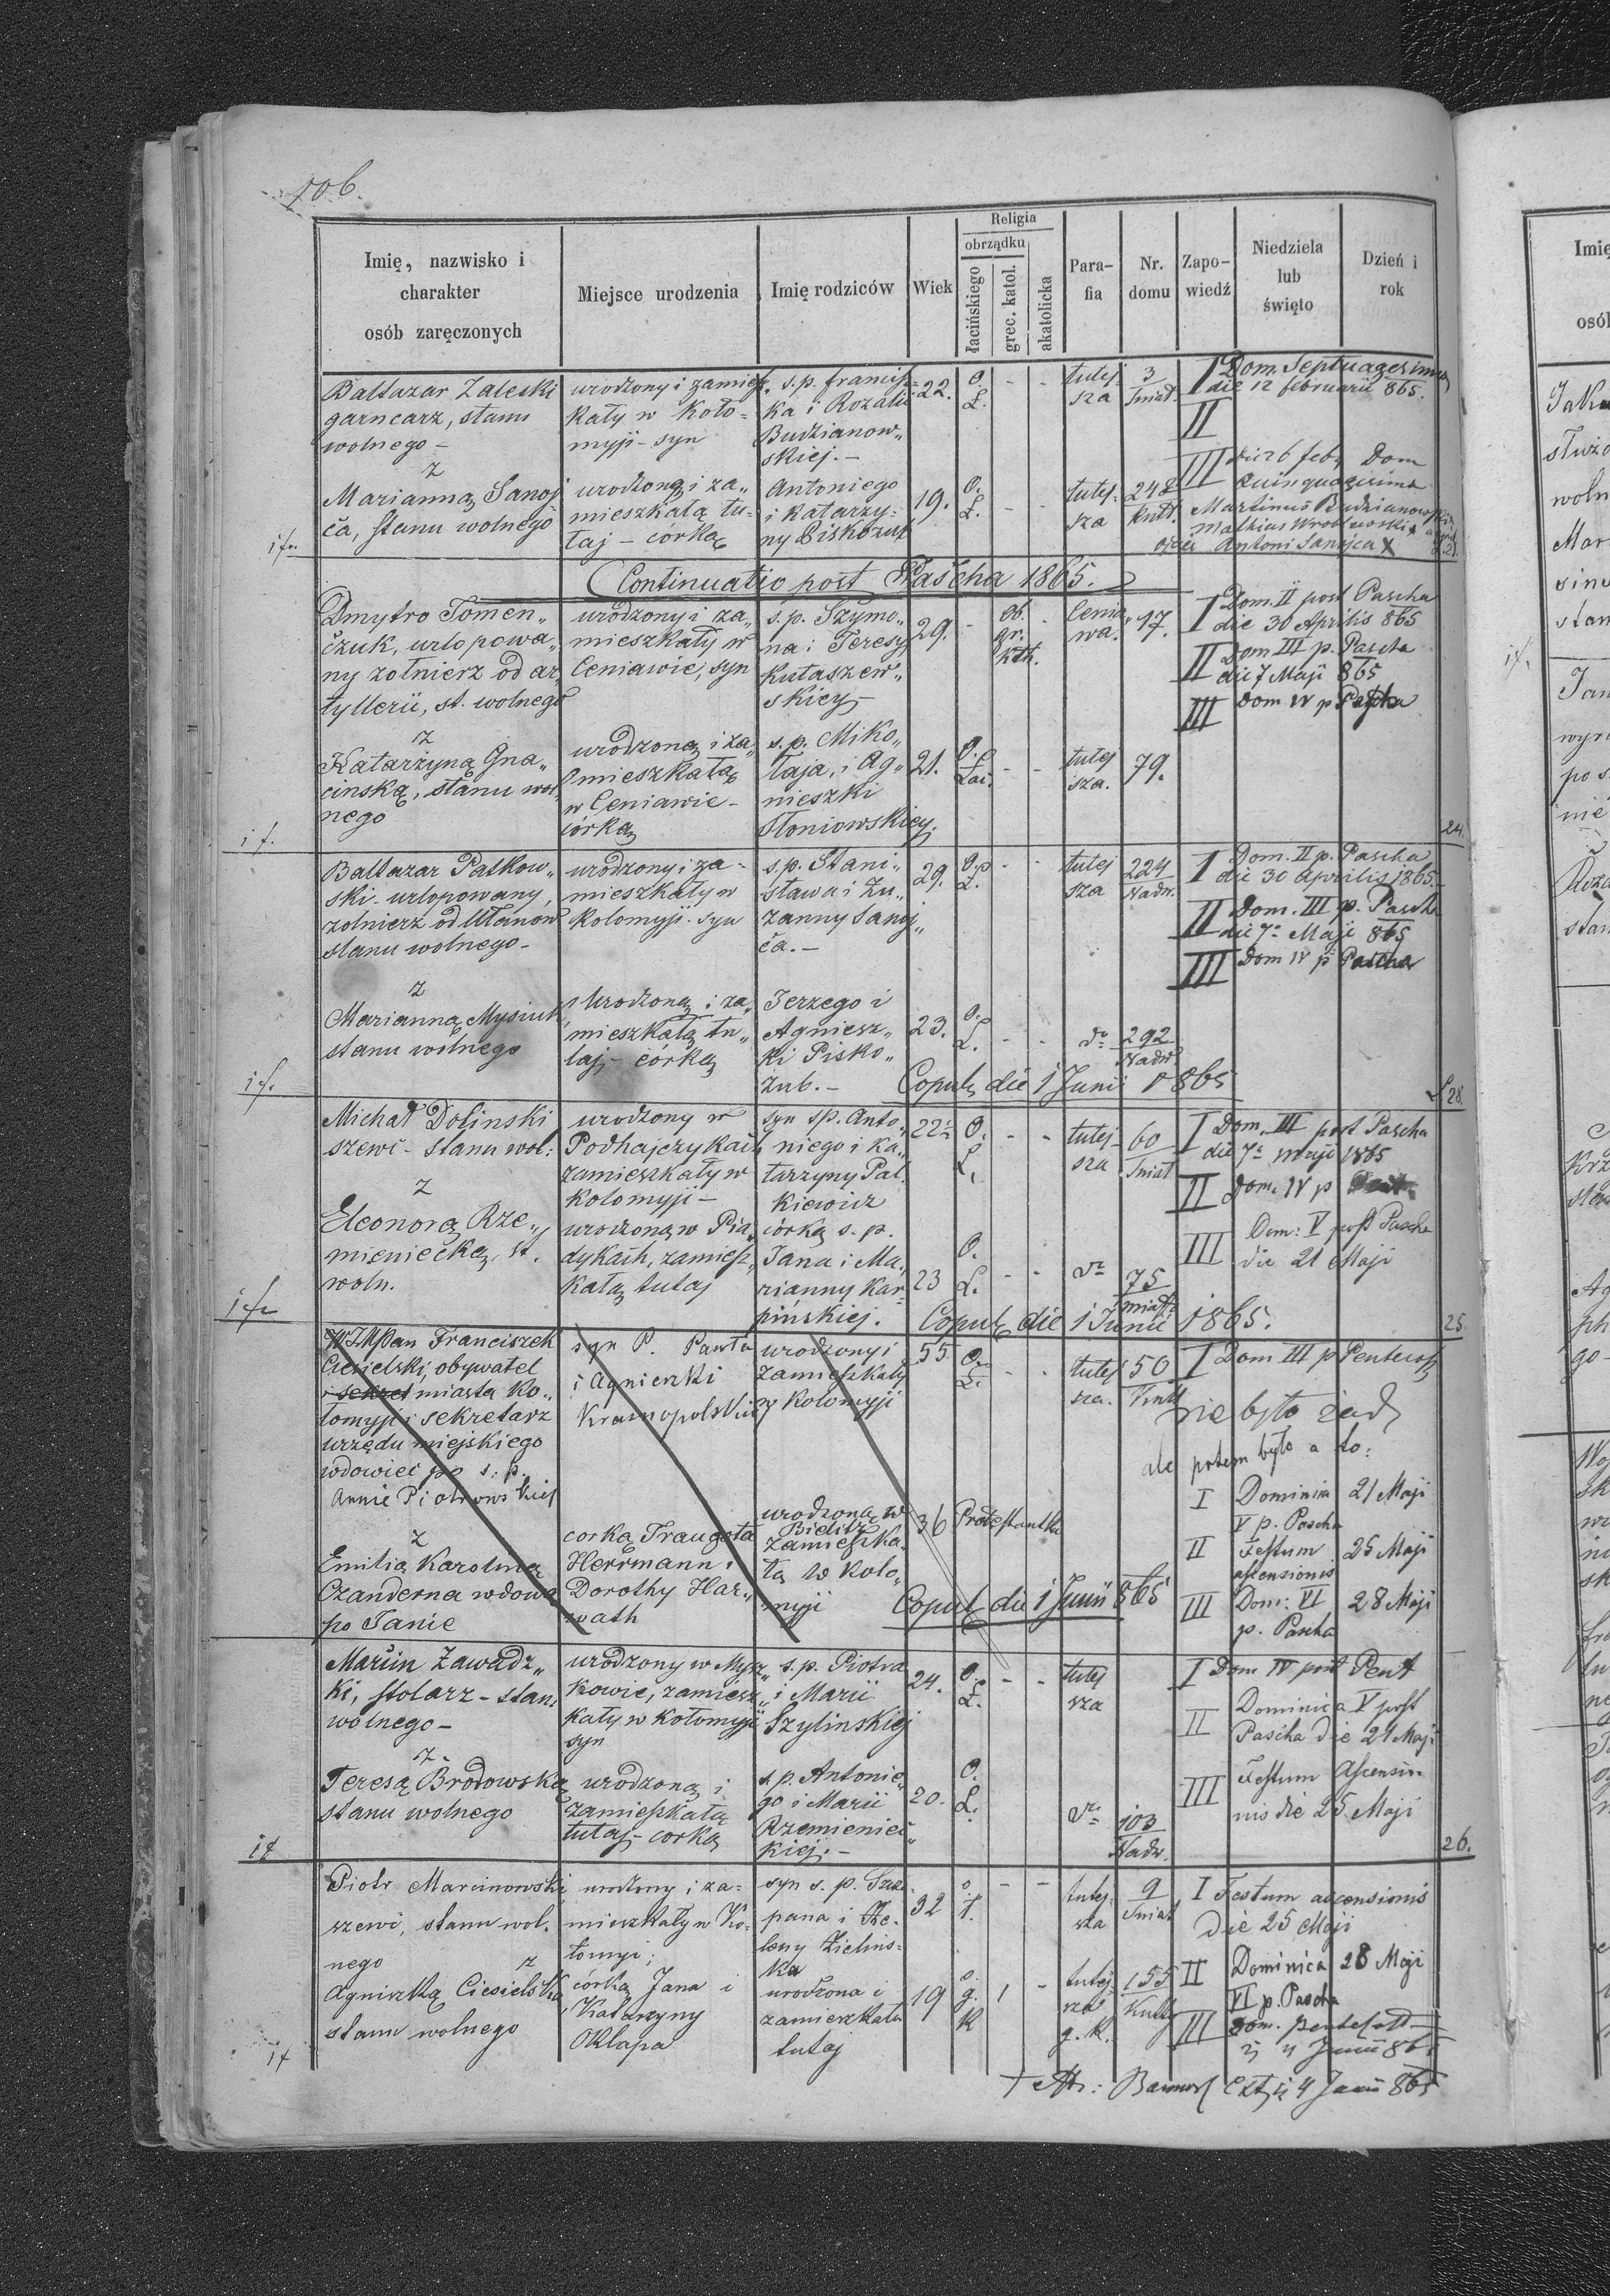 106.
Religia
obrządku
Imię, nazwisko i
charakter
osób zaręczonych
Miejsce urodzenia
Imię rodziców
Wiek
łacińskiego
grec. katol.
akatolicka
Para-
fia
Nr.
domu
Zapo-
wiedź
Niedziela
lub
święto
Dzień i
rok
Baltazar Zaleski
garncarz, stanu
wolnego -
z
Marianną Sanoj
ča, stanu wolnego
urodzony i zamiesz
kały w Koło=
myji - syn
urodzoną i za„
mieszkałą tu-
taj - córką
s. p. Francisz=
ka i Rozalii
Budzianow„
skiej. -
Antoniego
i Katarzy-
ny Piskozub
22.
O.
Ł.
19.
O.
Ł.
tutej
sza
3
Sniat.
tutej-
sza
248
Kutt.
I Dom. Septuagesima
die 12 februarii 865.
II
III die 26 feb. Dom
Quinquagesima
Martinus Budzianowski
Mathias Wroblewski
ojciec Antoni Sanojca X
Continuatio post Pascha 1865.
Dmytro Tomen„
čzuk, urlopowa„
ny żołnierz od ar„
tyllerii, st. wolnego
z
Katarzyną Gna„
cinską, stanu wol
nego
urodzony i za„
mieszkały w
Ceniawie, syn
urodzoną i za„
mieszkałą
w Ceniawie -
córką
s. p. Szymo„
na i Teresy
Kutaszew„
skiey -
s. p. Miko„
łaja, i Ag„
nieszki
Słoniowskiey.
29.
ob.
gr.
kth.
Cenia„
wa.
17.
21.
O.
Łac.
tutej
sza.
79.
I Dom. II post Pascha
die 30 Aprilis 865
II Dom III p. Pascha
die 7 Maji 865
III Dom IV p Pascha
24.
Baltazar Patkow„
ski - urlopowany
zolnierz od Ułanow
stanu wolnego -
z
Marianna Mysiuk
stanu wolnego
urodzony i za-
mieszkały w
Kolomyji - syn
Urodzoną i za„
mieszkałą tu„
taj - córką
s. p. Stani„
sława i Zu„
zanny Sanoj„
ča. -
Jerzego i
Agniesz„
ki Pisko„
zub. -
29.
O.
Ł.
tutej
sza
224
Nadw.
23.
O.
Ł.
dto
292
Nadw
I Dom. II p. Pascha
die 30 Aprilis 1865.
II Dom. III p. Pasch
die 7a Maji 865
III Dom IV p Pascha
Copul. die 1 Junii 1865
28.
Michał Dolinski
szewc - stanu wol:
z
Eleonorą Rze„
mieniecką, st.
woln.
urodzony w
Podhajczykach
zamieszkały w
Kolomyji -
urodzoną w Pia„
dykach, zamiesz„
kałą tutaj
syn sp. Anto„
niego i Ka„
tarzyny Pal„
kiewicz
córką s. p.
Jana i Ma„
rianny Kar=
pińskiej.
22½
O.
Ł.
tutej-
sza
60
Sniat
23
O.
Ł.
dto
75
Sniat
I Dom. III post Pascha
die 7a Maji 1865
II Dom. IV p
III Dom: V post Pascha
die 21 Maji
Copul. die 1 Junii 1865.
25.
Franciszek
Ciesielski, obywatel
i sekret miasta Ko„
łomyji i sekretarz
urzędu miejskiego
wdowiec po s. p.
Annie Piotrowskiej
z
Emilią Karoliną
Czanderna wdową
po Janie
syn P. Pawła
i Agnieszki
Krasnopolskiej
corką Traugotta
Herrmann i
Dorothy Har„
wath
urodzony i
zamieszkały
w Kolomyji
urodzoną w
Bielitz
zamieszka
łą w Koło„
myji
55
O.
Ł.
tutej
sza.
50
Kutt
36 Protestantka
I Dom III p Pentecost
nie było żad
ale potem było a to:
I Dominica 21 Maji
V p. Pascha
II Festum 25 Maji
ascensionis
III Dom: VI 28 Maji
p. Pascha
Copul. die 1 Junii 865
Marcin Zawadz„
ki, stolarz - stanu
wolnego -
z
Teresą Brodowską
stanu wolnego
urodzony w Mysz„
kowie, zamiesz„
kały w Kołomyji
syn
urodzoną i
zamieszkałą
tutaj - corką
s. p. Piotra
i Marii
Szylinskiej
s. p. Antonie„
go i Marii
Rzemieniec„
kiej. -
24.
O.
Ł.
tutej
sza
20.
O.
Ł.
dto
103
Nadw.
I Dom IV post Pent
II Dominica V post
Pascha die 21 Maji
III Festum Ascensio-
nis die 25 Maji
26.
Piotr Marcinowski
szewc, stanu wol.
nego
z
Agnieszką Ciesielską
stanu wolnego
urodzony i za-
mieszkały w Ko-
łomyi;
córką Jana i
Katarzyny
Okłapa
syn s. p. Szcze
pana i He-
leny Zielins-
ka
urodzona i
zamieszkała
tutaj
32
o
ł.
tutej-
sza
9
Sniat
19
o.
g.
K
1
tutej-
sza
g. k.
155
Kutt
I Festum ascensionis
Die 25 Maji
II Dominica 28 Maji
VI p. Pascha
III Dom. Pentecost
4 Junii 865
4 Junii 865